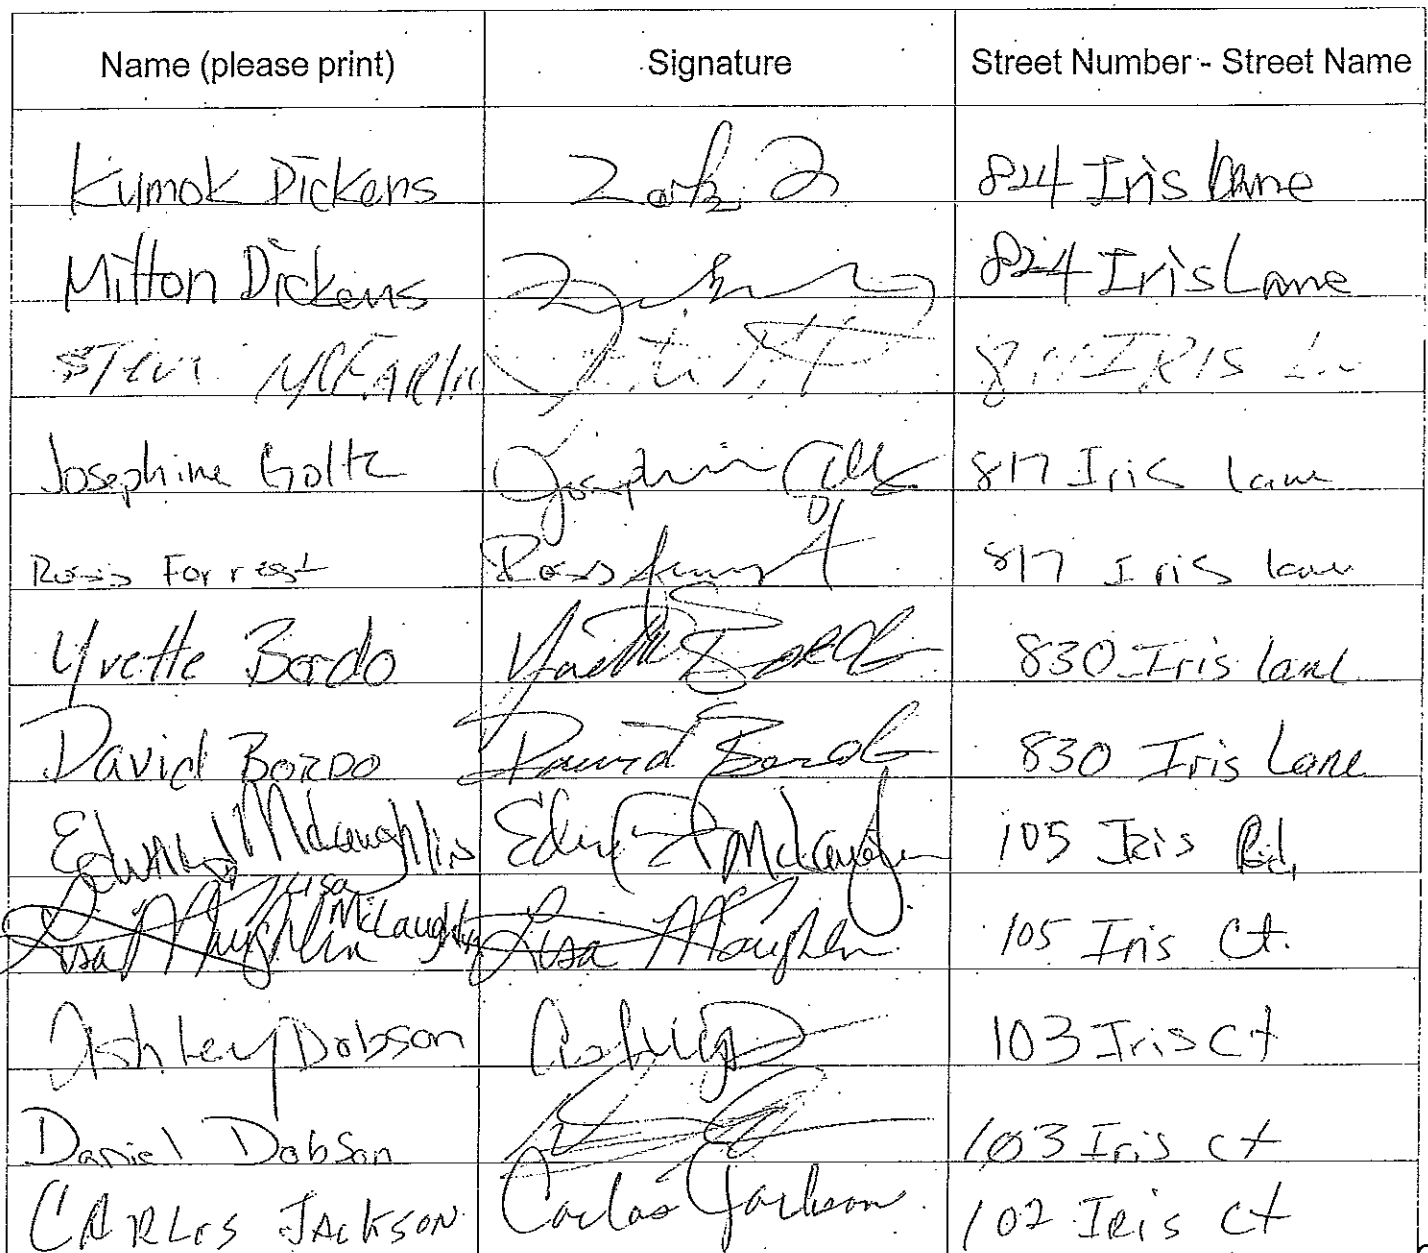 Name (please print) Signature Street Number - Street Name
Kumok Dickens 824 Iris Lane
Milton Dickens 824 Iris Lane
IRIS Ln
Josephine Goltz Josephine Goltz 817 Iris lane
Ross Forrest Ross Forrest 817 Iris lane
Yvette Bordo Yvette Bordo 830 Iris lane
David BORDO David Bordo 830 Iris Lane
Edward Mclaughlin Edw McLaughlin 105 Iris Rd.
Lisa McLaughlin Lisa McLaughlin 105 Iris Ct.
Ashley Dobson Ashley D 103 Iris Ct
Daniel Dobson 103 Iris ct
CARLOS JACKSON Carlos Jackson 102 Iris ct